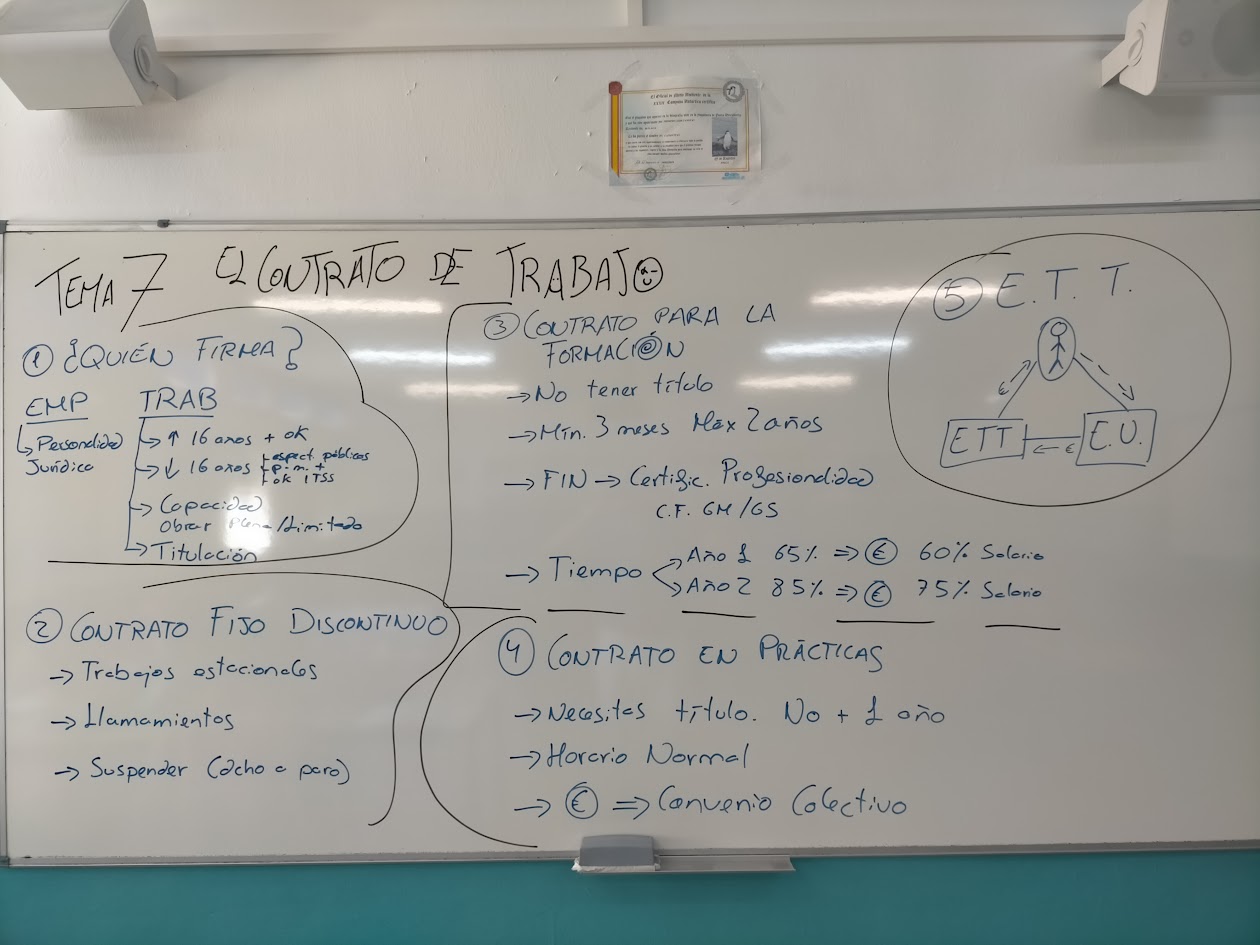 TEMA 7 EL CONTRATO DE TRABAJO
① ¿QUIÉN FIRMA?
EMP
Personalidad
Jurídica
TRAB
→ ↑ 16 años + ok
→ ↓ 16 años
espect. públicos
p.m. +
ok ITSS
→ Capacidad
Obrar Plena/Limitada
→ Titulación
② CONTRATO FIJO DISCONTINUO
→ Trabajos estacionales
→ Llamamientos
→ Suspender (dcho a paro)
③ CONTRATO PARA LA
FORMACIÓN
→ No tener título
→ Mín. 3 meses Máx 2 años
→ FIN → Certific. Profesionalidad
C.F. GM/GS
→ Tiempo
→ Año 1 65% ⇒ € 60% Salario
→ Año 2 85% ⇒ € 75% Salario
④ CONTRATO EN PRÁCTICAS
→ Necesitas título. No + 1 año
→ Horario Normal
→ € ⇒ Convenio Colectivo
⑤ E.T.T.
€
ETT
← €
E.U.